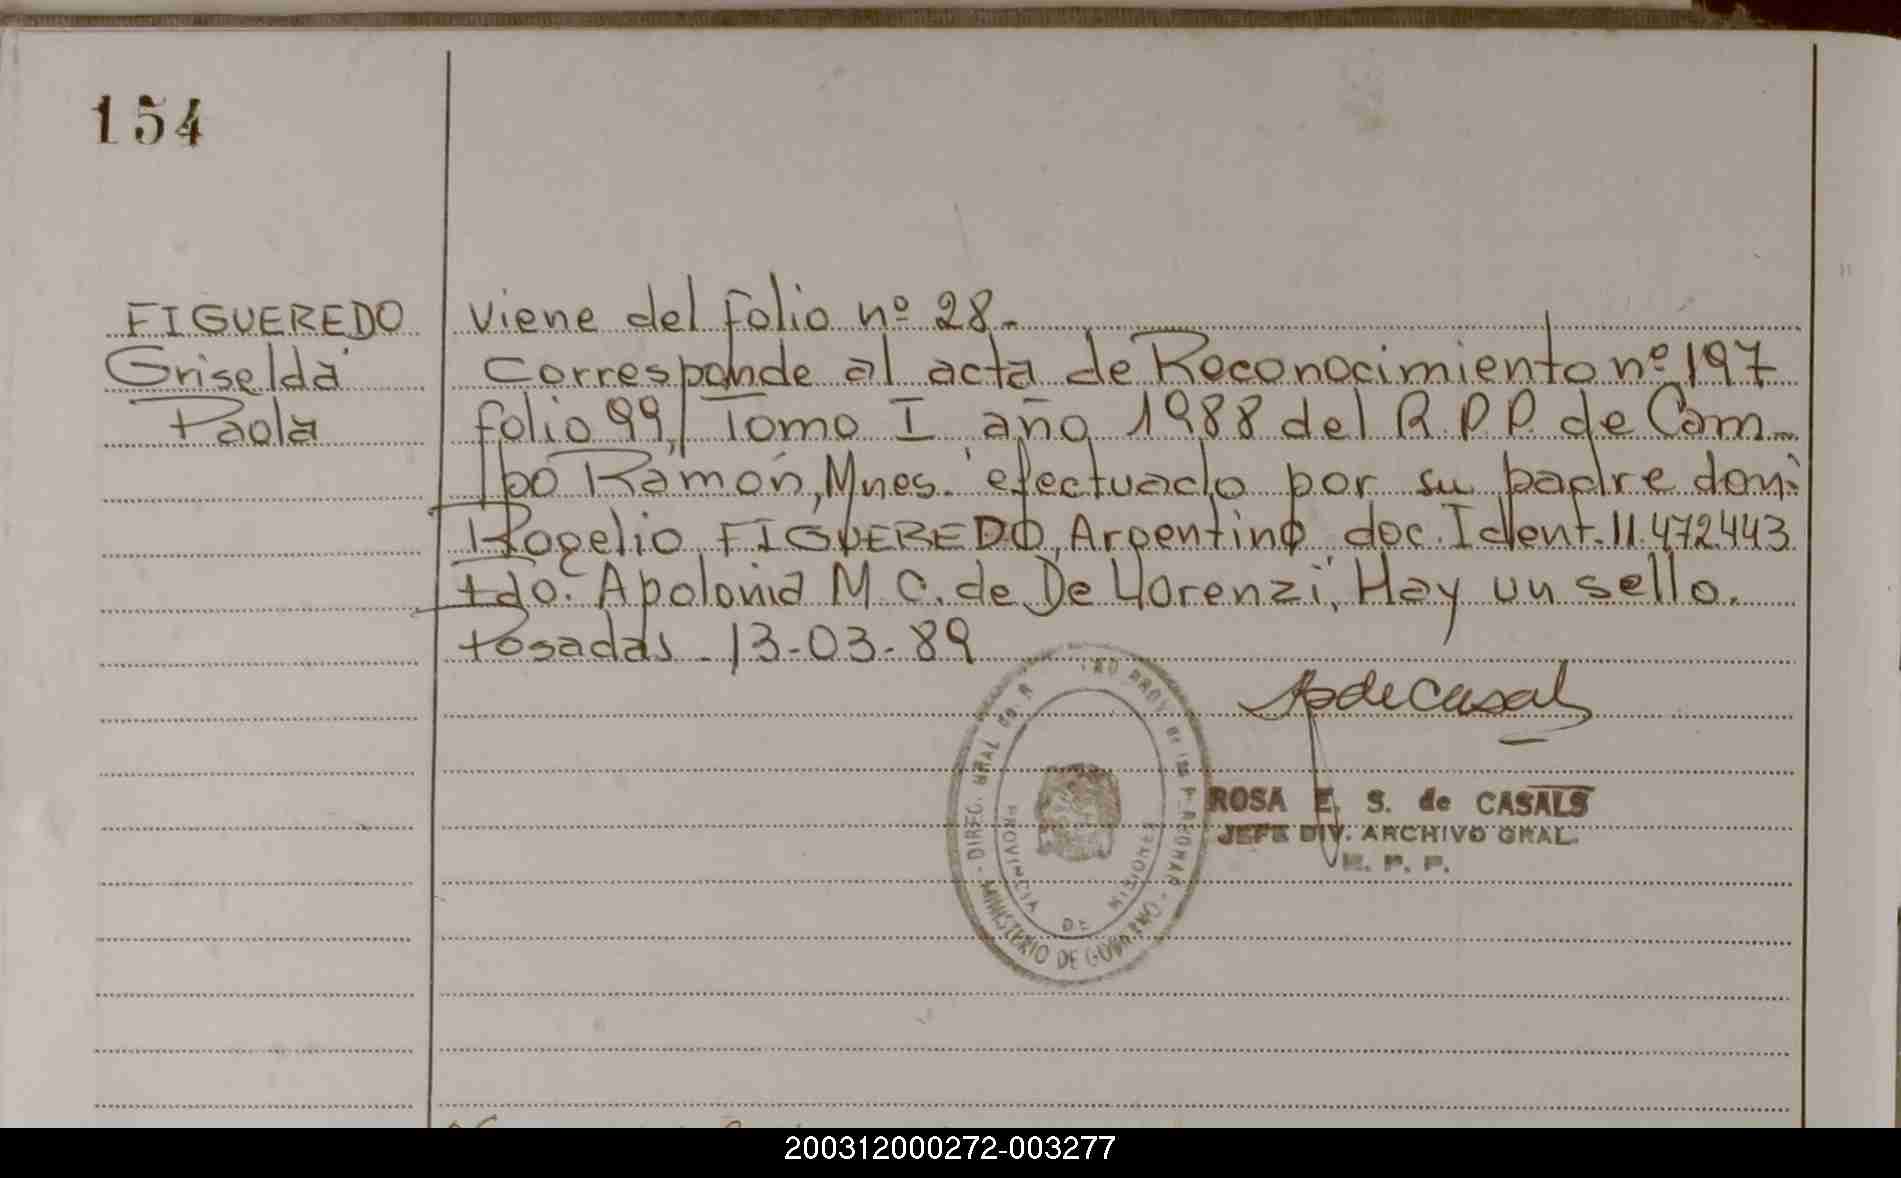 154
FIGUEREDO
Griselda
Paola
Viene del folio nº 28.
Corresponde al acta de Reconocimiento nº 197
folio 99, Tomo I año 1988 del R.P.P. de Cam-
po Ramón, Mnes. efectuado por su padre don:
Rogelio FIGUEREDO, Argentino doc. Ident. 11.472.443
Fdo. Apolonia M. C. de De Llorenzi, Hay un sello.
Posadas - 13-03-89
ROSA E. S. de CASALS
JEFE DIV. ARCHIVO GRAL.
R. P. P.
PROVINCIA DE MISIONES
MINISTERIO DE GOBIERNO
200312000272-003277